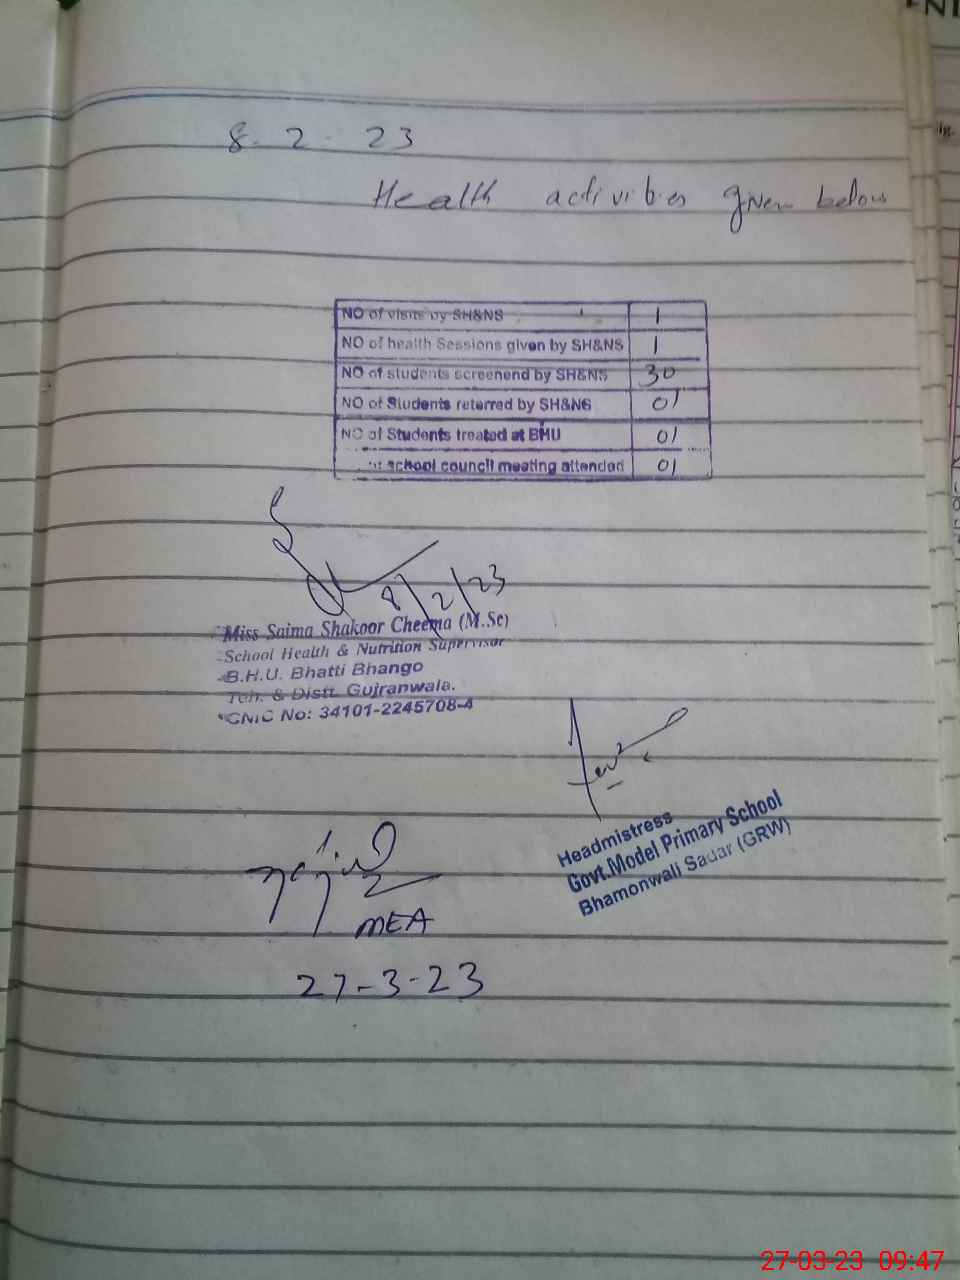 8. 2. 23
Health activities given below
NO of visits by SH&NS 1
NO of health Sessions given by SH&NS 1
NO of students screenend by SH&NS 30
NO of Students referred by SH&NS 01
NO of Students treated at BHU 01
school council meeting attended 01
8/2/23
Miss Saima Shakoor Cheema (M.Sc)
School Health & Nutrition Supervisor
B.H.U. Bhatti Bhango
Teh. & Distt. Gujranwala.
CNIC No: 34101-2245708-4
Headmistress
Govt.Model Primary School
Bhamonwali Sadar (GRW)
MEA
27-3-23
27-03-23 09:47